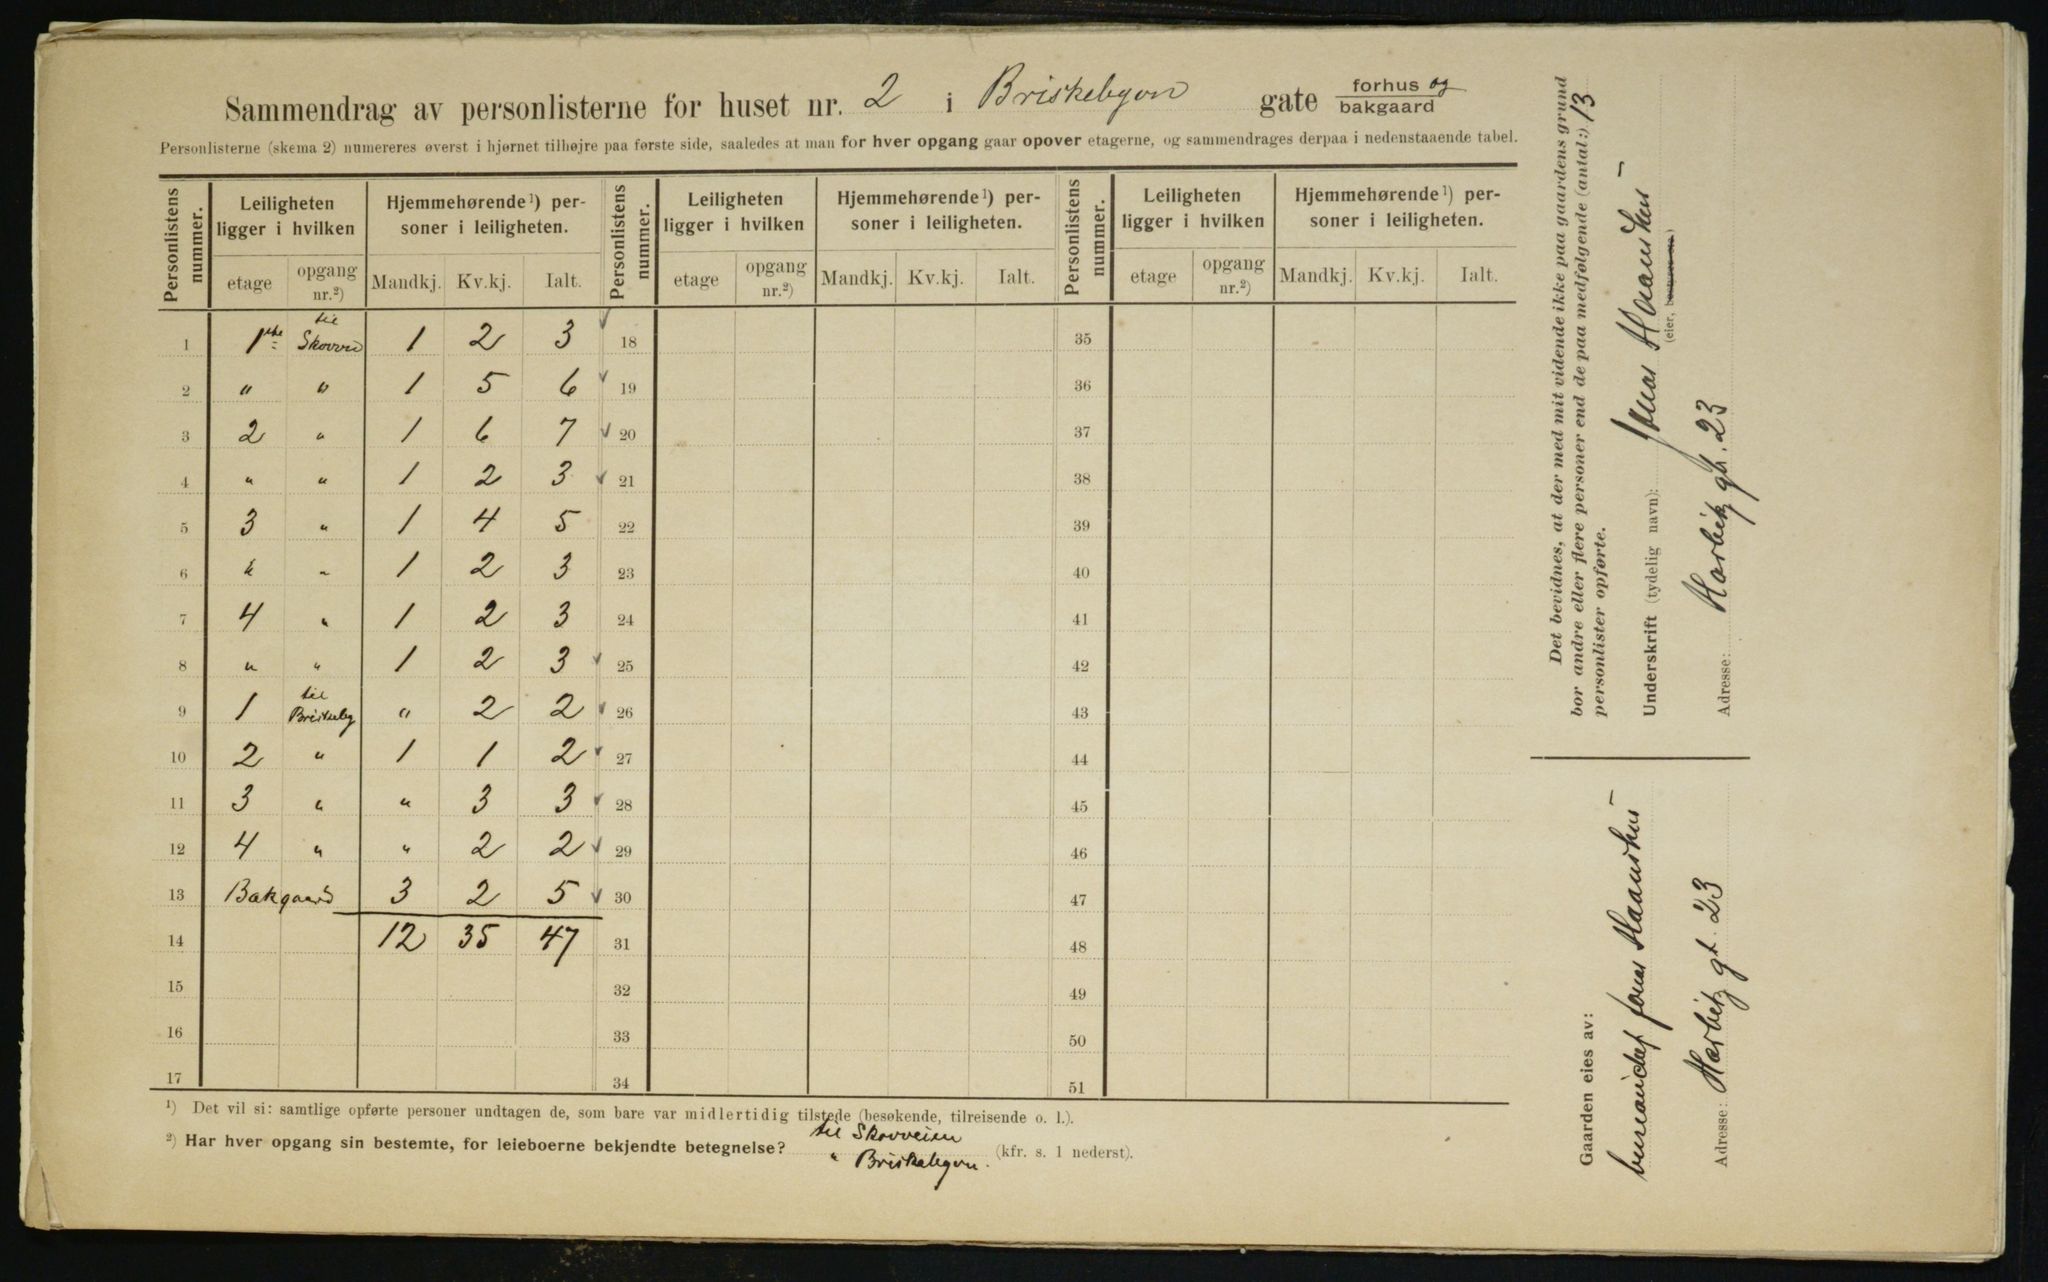 Sammendrag av personlisterne for huset nr. 2 i Briskebyvn gate forhus og bakgaard
Personlisterne (skema 2) numereres øverst i hjørnet tilhøjre paa første side, saaledes at man for hver opgang gaar opover etagerne, og sammendrages derpaa i nedenstaaende tabel.
Personlistens nummer. Leiligheten ligger i hvilken Hjemmehørende ¹) personer i leiligheten. Personlistens nummer. Leiligheten ligger i hvilken Hjemmehørende ¹) personer i leiligheten. Personlistens nummer. Leiligheten ligger i hvilken Hjemmehørende ¹) personer i leiligheten.
etage opgang nr.²) Mandkj. Kv.kj. Ialt. etage opgang nr.²) Mandkj. Kv.kj. Ialt. etage opgang nr.²) Mandkj. Kv.kj. Ialt.
1 1ste til Skovvei 1 2 3 18 35
2 " " 1 5 6 19 36
3 2 " 1 6 7 20 37
4 " " 1 2 3 21 38
5 3 " 1 4 5 22 39
6 " " 1 2 3 23 40
7 4 " 1 2 3 24 41
8 " " 1 2 3 25 42
9 1 til Briskeby " 2 2 26 43
10 2 " 1 1 2 27 44
11 3 " " 3 3 28 45
12 4 " " 2 2 29 46
13 Bakgaard 3 2 5 30 47
14 12 35 47 31 48
15 32 49
16 33 50
17 34 51
¹) Det vil si: samtlige opførte personer undtagen de, som bare var midlertidig tilstede (besøkende, tilreisende o. l.).
²) Har hver opgang sin bestemte, for leieboerne bekjendte betegnelse? til Skovveien
" Briskebyvn. (kfr. s. 1 nederst).
Det bevidnes, at der med mit vidende ikke paa gaardens grund
bor andre eller flere personer end de paa medfølgende (antal:) 13
personlister opførte.
Underskrift (tydelig navn): Jonas Haanshus
(eier, bestyrer etc.)
Adresse: Harbitz gt. 23
Gaarden eies av:
bureauchef Jonas Haanshus
Adresse: Harbitz gt. 23